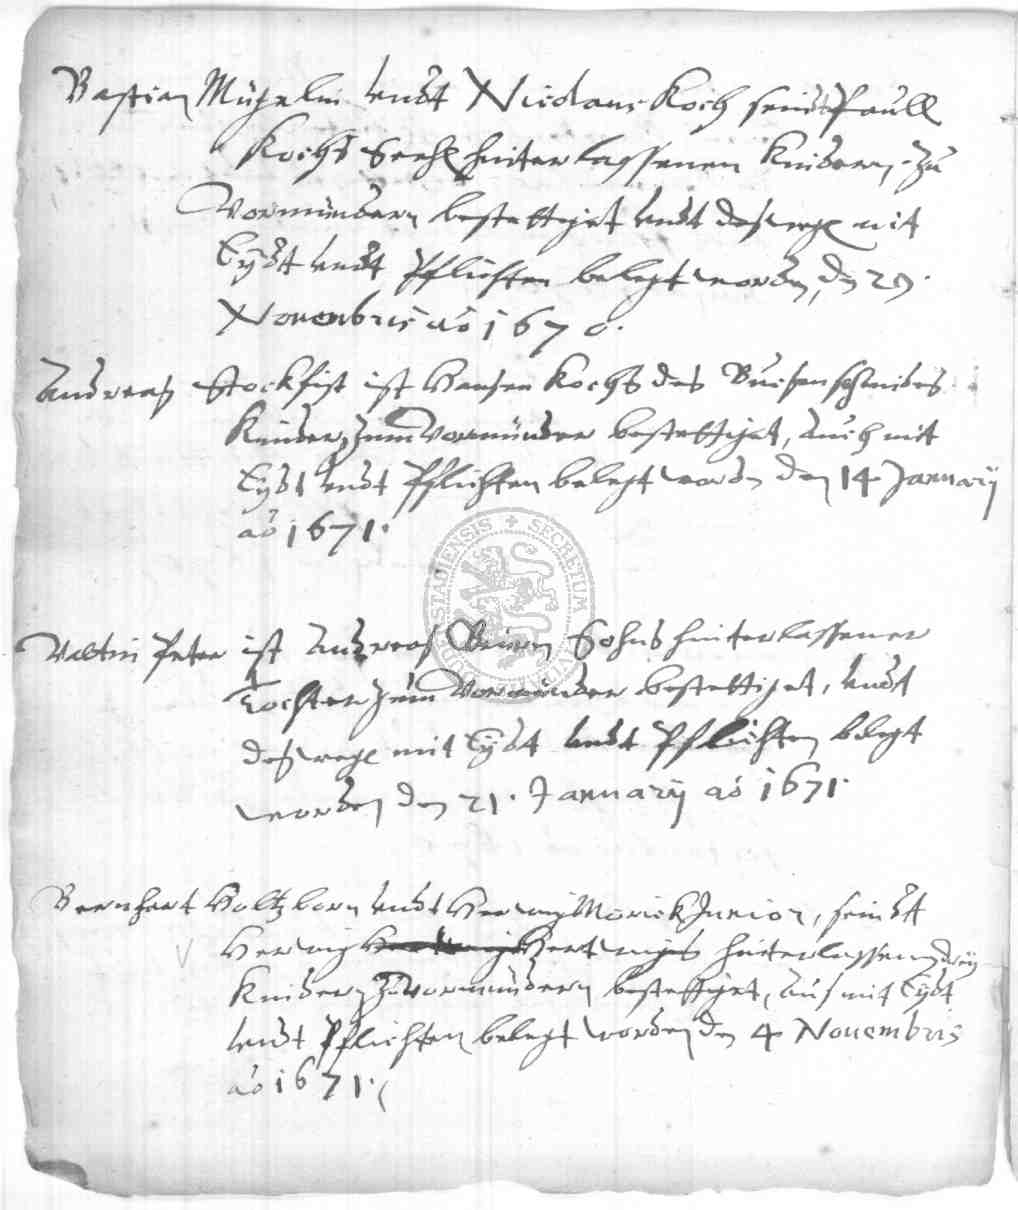 Bastian Mühelin undt Niclaus Koch seindt Paull
Kochs Seel hinterlassenen Kindern zu
Vormündern bestettiget undt deßwegē mit
Eydt undt Pflichten belegt worden, den 29.
Novembris ao 1670.
Andreas Stockfisch ist Hansen Kochs des Büchsenschmides
Kindern zum Vormünder bestettiget, auch mit
Eydt undt Pflichten belegt worden den 14 January
ao 1671.
Valtin Peter ist Andreas Sohns hinterlassener
Tochter zum Vormünder bestettiget, undt
deßwegē mit Eydt undt Pflichten belegt
worden den 21. January ao 1671.
Bernhart Holtzborn undt Herwig Mörick Junior, seindt
Herwig Hertwigs hinterlassenen drey
Kindern zu Vormündern bestettiget, auch mit Eydt
undt Pflichten belegt worden den 4 Novembris
ao 1671.
SECRETUM